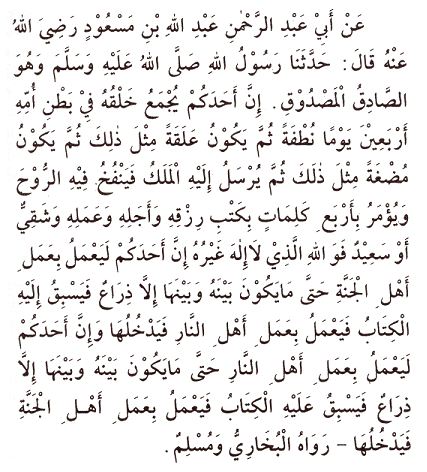 عَنْ أَبِيْ عَبْدِ الرَّحْمٰنِ عَبْدِ اللهِ بْنِ مَسْعُوْدٍ رَضِيَ اللهُ
عَنْهُ قَالَ: حَدَّثَنَا رَسُوْلُ اللهِ صَلَّى اللهُ عَلَيْهِ وَسَلَّمَ وَهُوَ
الصَّادِقُ الْمَصْدُوْقُ. إِنَّ أَحَدَكُمْ يُجْمَعُ خَلْقُهُ فِيْ بَطْنِ أُمِّهِ
أَرْبَعِيْنَ يَوْمًا نُطْفَةً ثُمَّ يَكُوْنُ عَلَقَةً مِثْلَ ذٰلِكَ ثُمَّ يَكُوْنُ
مُضْغَةً مِثْلَ ذٰلَكَ ثُمَّ يُرْسَلُ إِلَيْهِ الْمَلَكُ فَيَنْفُخُ فِيْهِ الرُّوْحَ
وَيُؤْمَرُ بِأَرْبَعِ كَلِمَاتٍ بِكَتْبِ رِزْقِهِ وَأَجَلِهِ وَعَمَلِهِ وَشَقِيٌّ
أَوْ سَعِيْدٌ فَوَ اللهِ الَّذِيْ لَاإِلٰهَ غَيْرُهُ إِنَّ أَحَدَكُمْ لَيَعْمَلُ بِعَمَلِ
أَهْلِ الْجَنَّةِ حَتَّى مَايَكُوْنَ بَيْنَهُ وَبَيْنَهَا إِلَّا ذِرَاعٌ فَيَسْبِقُ إِلَيْهِ
الْكِتَابُ فَيَعْمَلُ بِعَمَلِ أَهْلِ النَّارِ فَيَدْخُلُهَا وَإِنَّ أَحَدَكُمْ
لَيَعْمَلُ بِعَمَلِ أَهْلِ النَّارِ حَتَّى مَايَكُوْنَ بَيْنَهُ وَبَيْنَهَا إِلَّا
ذِرَاعٌ فَيَسْبِقُ عَلَيْهِ الْكِتَابُ فَيَعْمَلُ بِعَمَلِ أَهْلِ الْجَنَّةِ
فَيَدْخُلُهَا – رَوَاهُ الْبُخَارِيُّ وَمُسْلِمٌ.